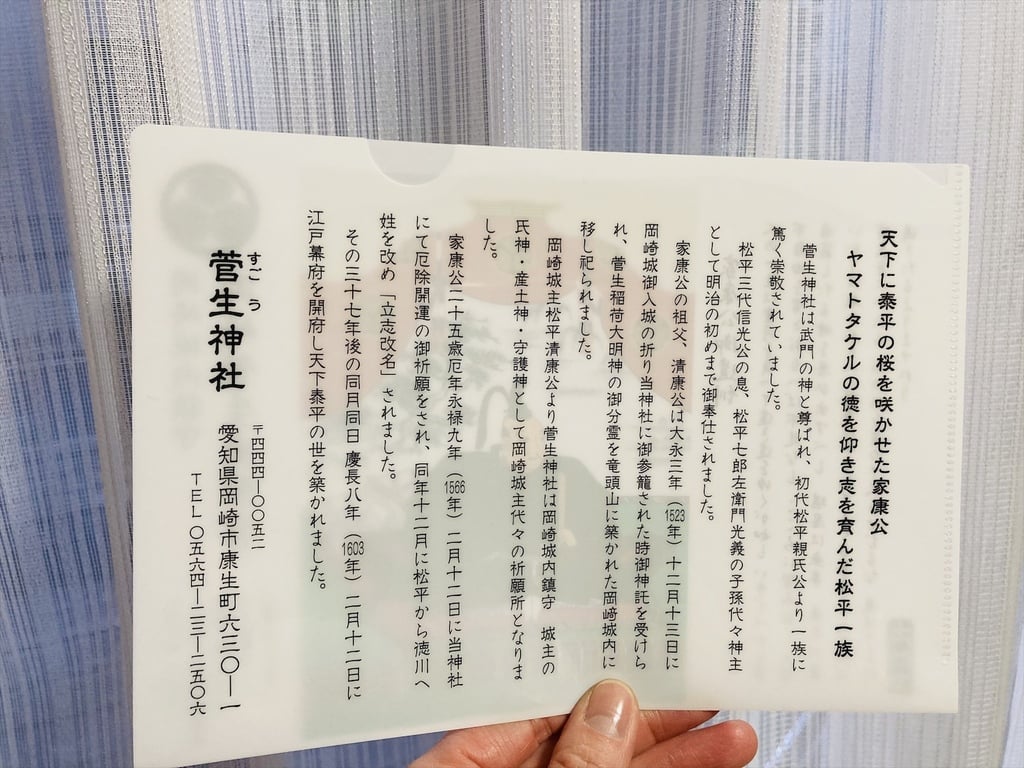 天下に泰平の桜を咲かせた家康公
ヤマトタケルの徳を仰き志を育んだ松平一族
菅生神社は武門の神と尊ばれ、初代松平親氏公より一族に
篤く崇敬されていました。
松平三代信光公の息、松平七郎左衛門光義の子孫代々神主
として明治の初めまで御奉仕されました。
家康公の祖父、清康公は大永三年（1523年）十二月十三日に
岡崎城御入城の折り当神社に御参籠された時御神託を受けら
れ、菅生稲荷大明神の御分霊を竜頭山に築かれた岡崎城内に
移し祀られました。
岡崎城主松平清康公より菅生神社は岡崎城内鎮守　城主の
氏神・産土神・守護神として岡崎城主代々の祈願所となりま
した。
家康公二十五歳厄年永禄九年（1566年）二月十二日に当神社
にて厄除開運の御祈願をされ、同年十二月に松平から徳川へ
姓を改め「立志改名」されました。
その三十七年後の同月同日 慶長八年（1603年）二月十二日に
江戸幕府を開府し天下泰平の世を築かれました。
すごう
菅生神社
〒四四四―〇〇五二
愛知県岡崎市康生町六三〇―一
ＴＥＬ〇五六四―二三―二五〇六